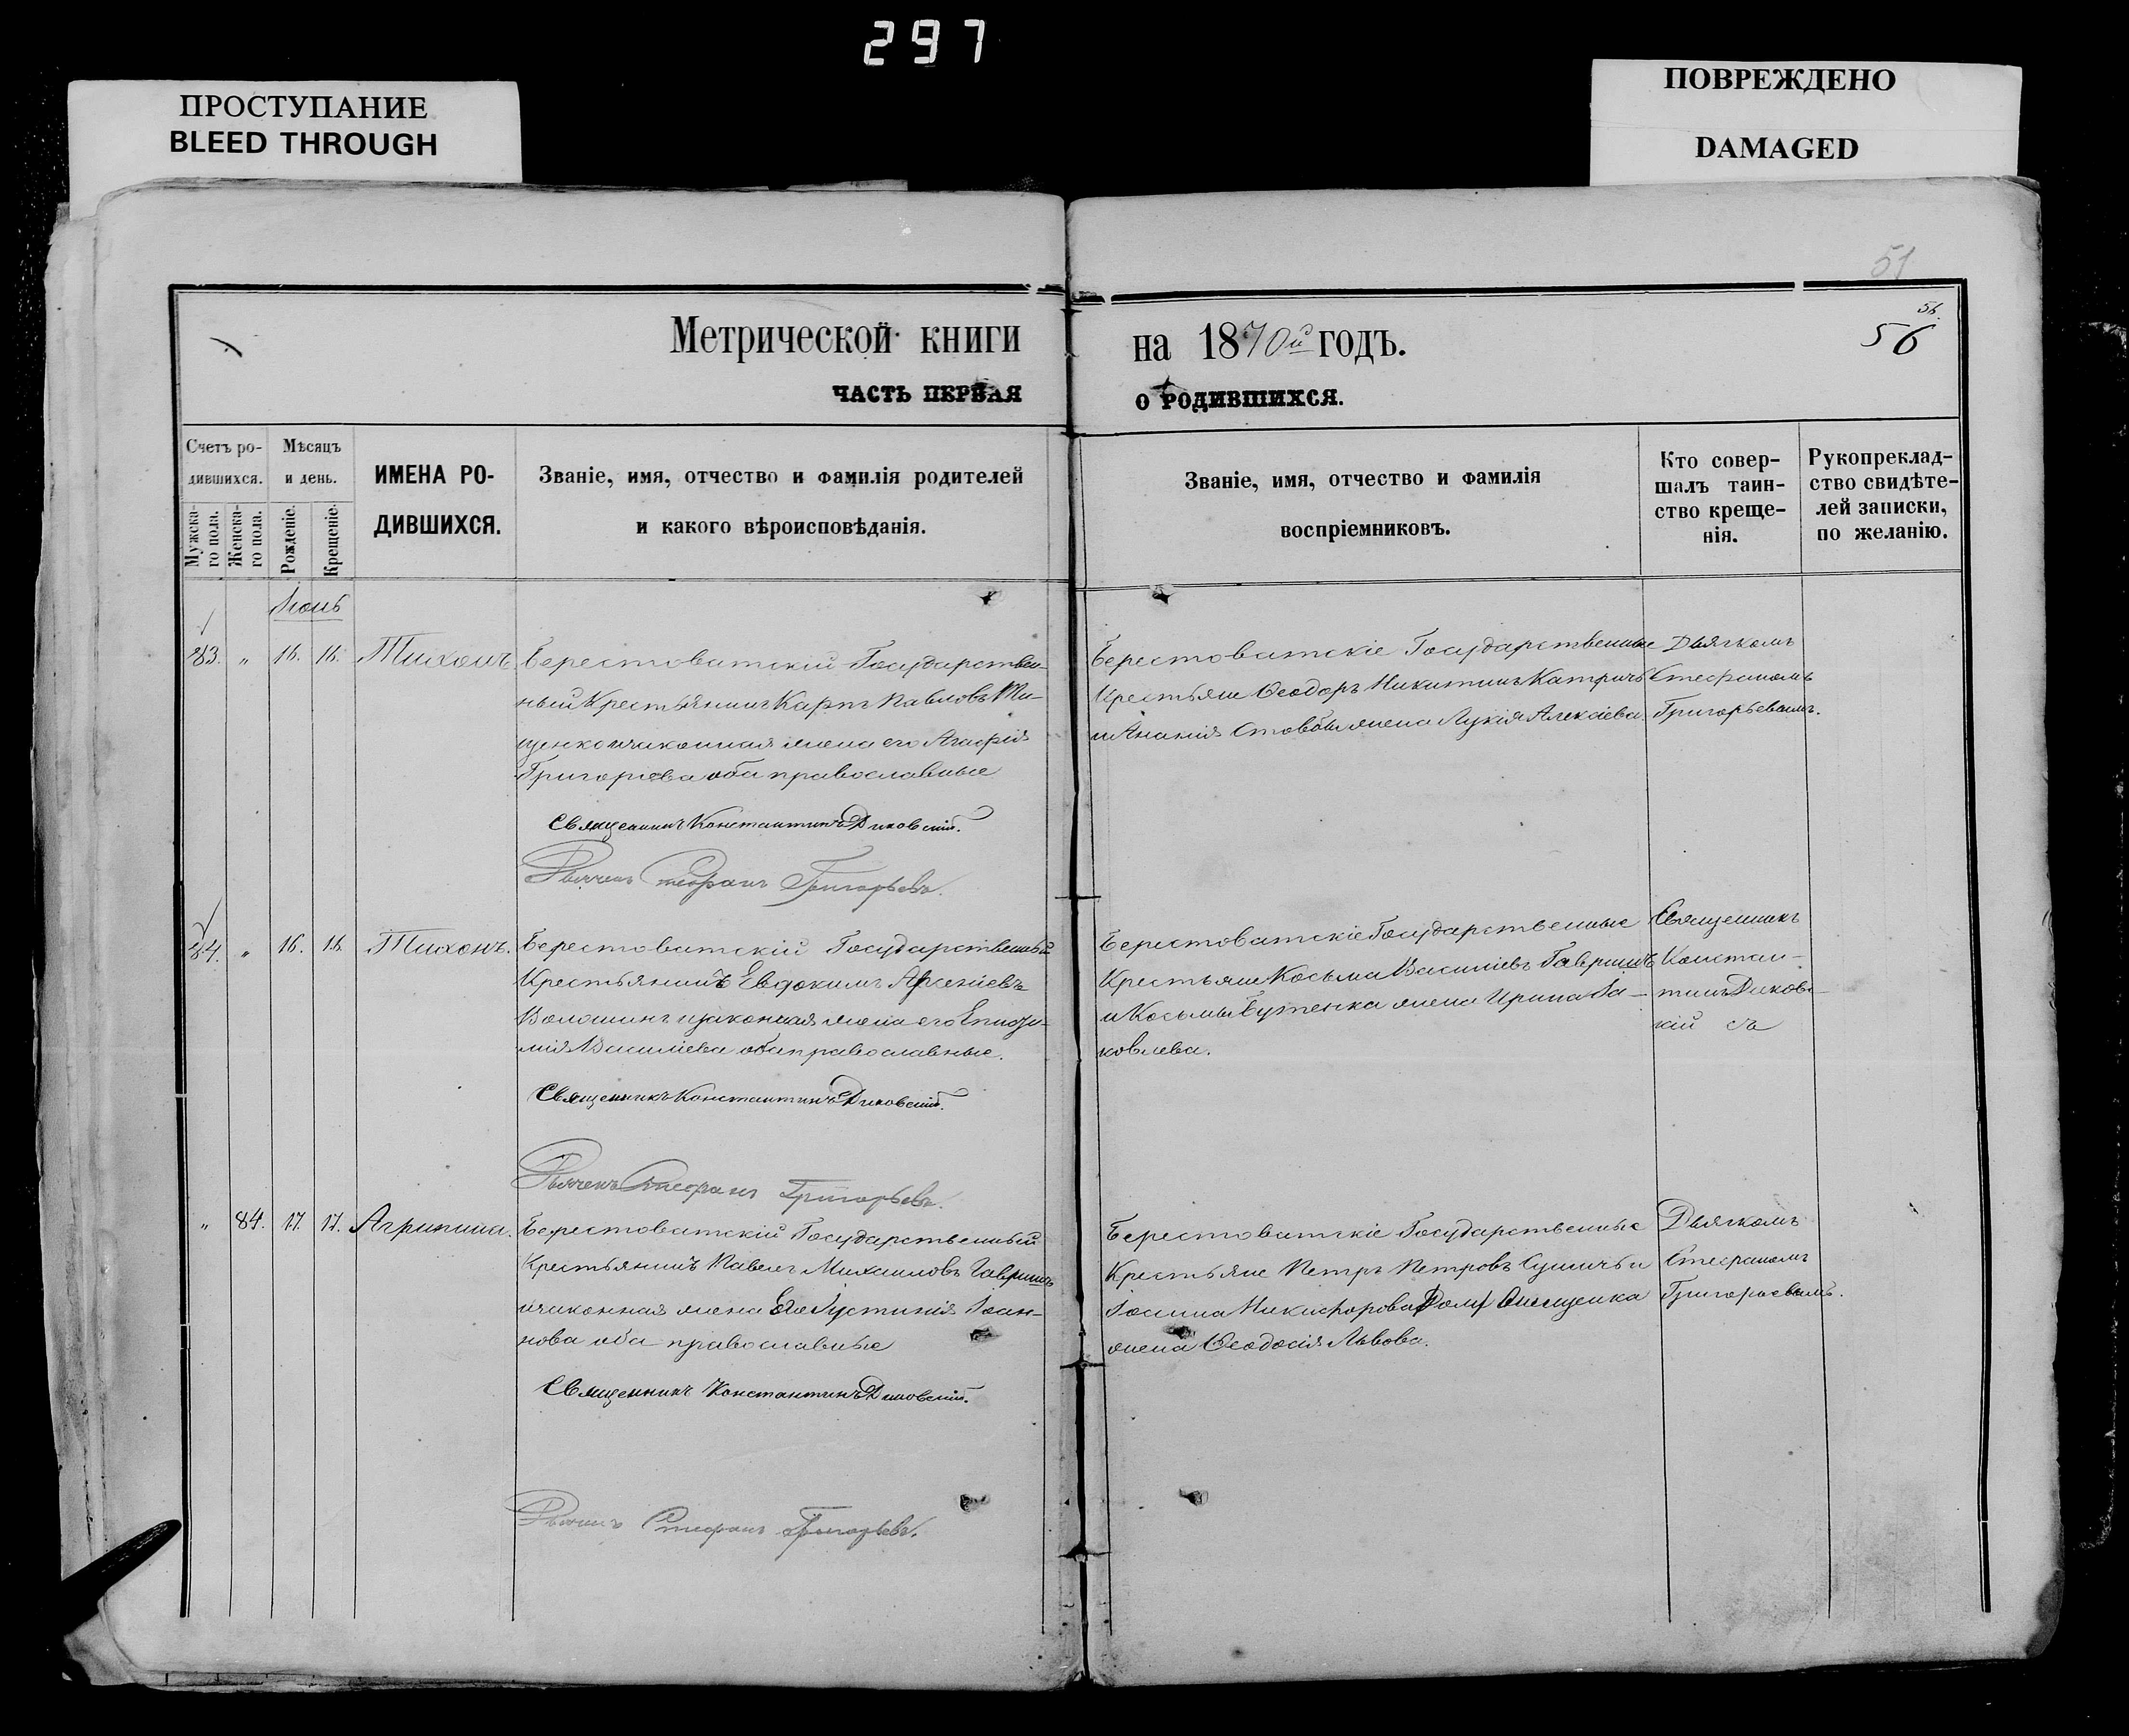 297
ПРОСТУПАНИЕ
BLEED THROUGH
ПОВРЕЖДЕНО
DAMAGED
51
56
56
Метрической книги на 1870й годъ.
ЧАСТЬ ПЕРВАЯ О РОДИВШИХСЯ.
Счетъ ро-
дившихся.
Мужска-
го пола.
Женска-
го пола.
Мѣсяцъ
и день.
Рожденіе.
Крещеніе.
ИМЕНА РО-
ДИВШИХСЯ.
Званіе, имя, отчество и фамилія родителей
и какого вѣроисповѣданія.
Званіе, имя, отчество и фамилія
воспріемниковъ.
Кто совер-
шалъ таин-
ство креще-
нія.
Рукопреклад-
ство свидѣте-
лей записки,
по желанію.
83. " 16. 16. Тихонъ
Берестоватскій Государствен-
ный Крестьянинъ Карпъ Павловъ Ти-
щенко и законная жена его Агафія
Григоріева оба православные
Священникъ Константинъ Диковскій.
Дьячекъ Стефанъ Григорьевъ.
Берестоватскіе Государственные
Крестьяне Ѳеодоръ Никитинъ Катричъ
и Ананія жена Лукія Алексіева.
Дьячкомъ
Стефаномъ
Григорьевымъ.
84. " 16. 18. Тихонъ.
Берестоватскій Государственный
Крестьянинъ Евдокимъ Арсеніевъ
Волошинъ и законная жена его
Василіева оба православные.
Священникъ Константинъ Диковскій.
Дьячекъ Стефанъ Григорьевъ.
Берестоватскіе Государственные
Крестьяне Косьма Василіевъ Гавришъ
и Косьмы Бутенка жена Ирина Іа-
ковлева.
Священникъ
Констан-
тинъ Диковс-
кій съ
" 84. 17. 17. Агрипина.
Берестоватскій Государственный
Крестьянинъ Павелъ Михаиловъ Гавришъ
и законная жена его Іустинія Іоан-
нова оба православные
Священникъ Константинъ Диковскій.
Дьячекъ Стефанъ Григорьевъ.
Берестоватскіе Государственные
Крестьяне Петръ Петровъ и
Никифорова Онищенка
жена Ѳеодосія Львова.
Дьячкомъ
Стефаномъ
Григорьевымъ.